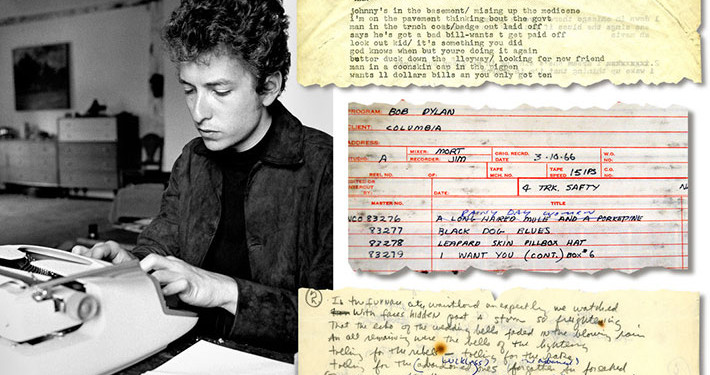 johnny's in the basement/ mixing up the medicene
i'm on the pavement thinking bout the govt
man in the trench coat/badge out laid off
says he's got a bad bill-wants t get paid off
look out kid/ it's something you did
god knows when but youre doing it again
butter duck down the alleyway/ looking for new friend
man in a coonskin cap in the pigpen
wants ll dollars bills an you only got ten
PROGRAM: BOB DYLAN
CLIENT: COLUMBIA
ADDRESS:
STUDIO: A MIXER: MORT RECORDER: JIM ORIG. RECRD. DATE 3-10-66 W.O. NO.
REEL NO. OF: TAPE MCH. NO. TAPE SPEED 15 IPS C.O. NO.
BY: DATE: 4 TRK. SAFTY
MASTER NO. TITLE
RAINY DAY WOMEN
NCO 83276 A LONG HAIRED MULE AND A PORKEPINE
83277 BLACK DOG BLUES
83278 LEAPARD SKIN PILLBOX HAT
83279 I WANT YOU (CONT.) BOX #6
In the furnace city, we watched
With faces hidden past a storm so frightening
That the echo of the wedding bells faded in the blowing rain
An all remaining were the bells of the lightening
tolling for the rebel tolling for the rake
tolling for the forsaked